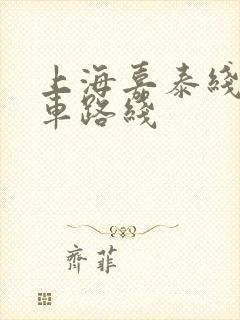 上海嘉泰綫
車路綫
齊菲